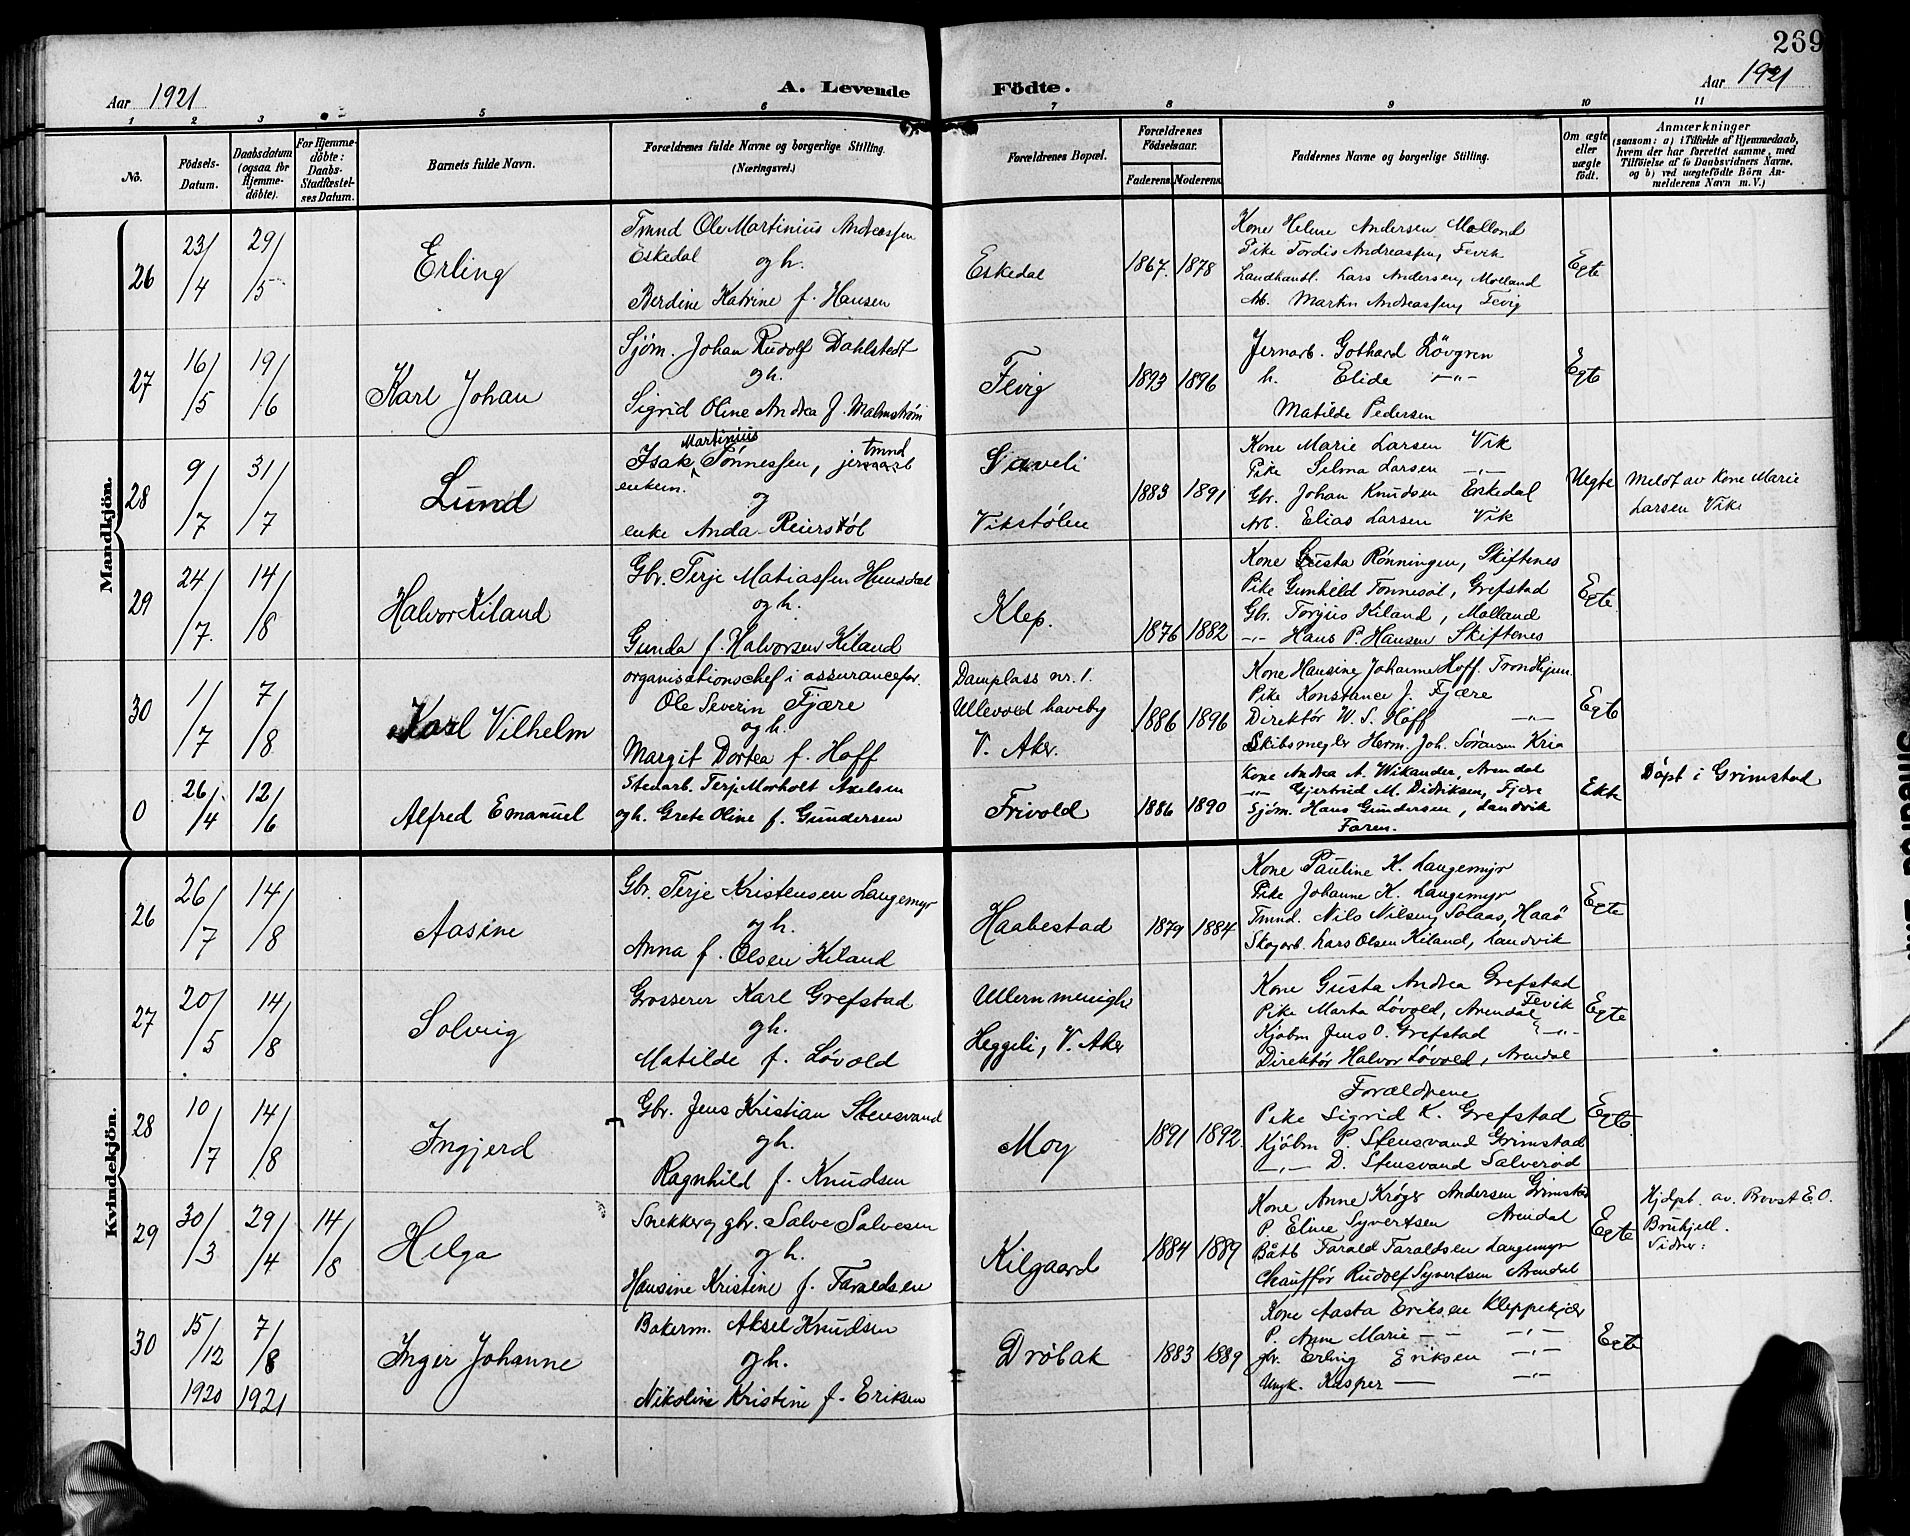 269
Aar 1921
A. Levende Födte.
Aar 1921
1 2 3 5 6 7 8 9 10 11
No.
Födsels-Datum.
Daabsdatum (ogsaa for Hjemme-döbte).
For Hjemme-döbte: Daabs-Stadfæstel-ses Datum.
Barnets fulde Navn.
Forældrenes fulde Navne og borgerlige Stilling. (Næringsvei.)
Forældrenes Bopæl.
Forældrenes Födselsaar.
Faderens. Moderens.
Faddernes Navne og borgerlige Stilling.
Om ægte eller uægte født.
Anmærkninger
(saasom: a) i Tilfælde af Hjemmedaab,
hvem der har forrettet samme, med
Tilföielse af to Daabsvidners Navne,
og b) ved uægtefödte Börn An-
melderens Navn m. V.)
Mandkjön.
26 23/4 29/5 Erling
Tmnd Ole Martinius Andreassen
Eskedal og h.
Berdine Katrine f. Hansen
Eskedal 1867. 1878
Kone Helene Andersen Molland
Pike Tordis Andreassen, Fevik
Landhandl. Lars Andersen, Molland
Arb. Martin Andreassen, Fevig
Egte
27 16/5 19/6 Karl Johan
Sjøm. Johan Rudolf Dahlstedt
og h.
Sigrid Oline Andrea f. Malmstrøm
Fevig 1893 1896
Jernarb. Gothard Lövgren
h. Elide -"-
Matilde Pedersen
Egte
28 9/7 31/7 Lund
Martinius tmnd
Isak Tønnessen,
enkem. og
enke Anda Reierstøl
Vikstølen 1883 1891
Kone Marie Larsen Vik
Pike Selma Larsen -"-
Gbr. Johan Knudsen Eskedal
Arb. Elias Larsen Vik
Uegte
Meldt av Kone Marie
Larsen Vik
29 24/7. 14/8 Halvor Kiland
Gbr. Terje Matiassen
og h.
Gunda f. Halvorsen Kiland
Klep. 1876 1882
Kone Gusta Rønningen, Skiftenes
Pike Gunhild Tønnesøl, Grefstad
Gbr. Torjus Kiland, Molland
-"- Hans P. Hansen Skiftenes
Egte
30 1/7 7/8 Karl Vilhelm
organisationschef i assurancefor.
Ole Severin Fjære
og h.
Margit Dortea f. Hoff
Damplass nr. 1.
Ullevold haveby
V. Aker. 1886 1896
Kone Hansine Johanne Hoff. Trondhjem
Pike Konstance J. Fjære
Direktør W. S. Hoff -"-
Skibsmegler Herm. Joh. Sørensen Kria
Egte
0 26/4 12/6 Alfred Emanuel
Stenarb. Terje Morholt Axelsen
og h. Grete Oline f. Gundersen
Frivold 1886 1890
Kone Andrea A. Wikander, Arendal
-"- Gjertrud M. Didriksen, Fjære
Sjøm. Hans Gundersen, Landvik
Faren.
Ekte
Døpt i Grimstad
Kvindekjön.
26 26/7 14/8 Aasine
Gbr. Terje Kristensen Langemyr
og h.
Anna f. Olsen Kiland
Haabestad 1879 1884
Kone Pauline K. Langemyr
Pike Johanne K. Langemyr
Tmnd. Nils Nilsen, Solaas, Haaö
Skogarb. Lars Olsen Kiland, Landvik
Egte
27 20/5 14/8 Solveig
Grosserer Karl Grefstad
og h.
Matilde f. Løvold
Ullern menigh
Heggeli, V. Aker
Kone Gusta Andrea Grefstad
Fevik
Pike Marta Løvold, Arendal
Kjøbm Jens O. Grefstad -"-
Direktør Halvor Løvold, Arendal
Egte
28 10/7 14/8 Ingjerd
Gbr. Jens Kristian Stensvand
og h.
Ragnhild f. Knudsen
Moy 1891 1892.
Forældrene
Pike Sigrid K. Grefstad
Kjøbm P. Stensvand Grimstad
-"- D. Stensvand Salverød
Egte
29 30/3 29/4 14/8 Helga
Snekker og gbr. Salve Salvesen
og h.
Hansine Kristine f. Taraldsen
Kilgaard 1884 1889
Kone Anne Krøger Andersen Grimstad
P. Eline Syvertsen Arendal
Båtb Tarald Taraldsen Langemyr
Chauffør Rudolf Syvertsen Arendal
Egte
Hjdpt. av. Provst E. O.
Vidner:
30 15/12 1920 7/8 1921 Inger Johanne
Bakerm. Aksel Knudsen
og h.
Nikoline Kristine f. Eriksen
Drøbak 1883 1889
Kone Aasta Eriksen Kleppekjær
P. Anne Marie -"- -"-
gbr. Erling Eriksen -"-
Ungk. Kasper — -"-
Egte